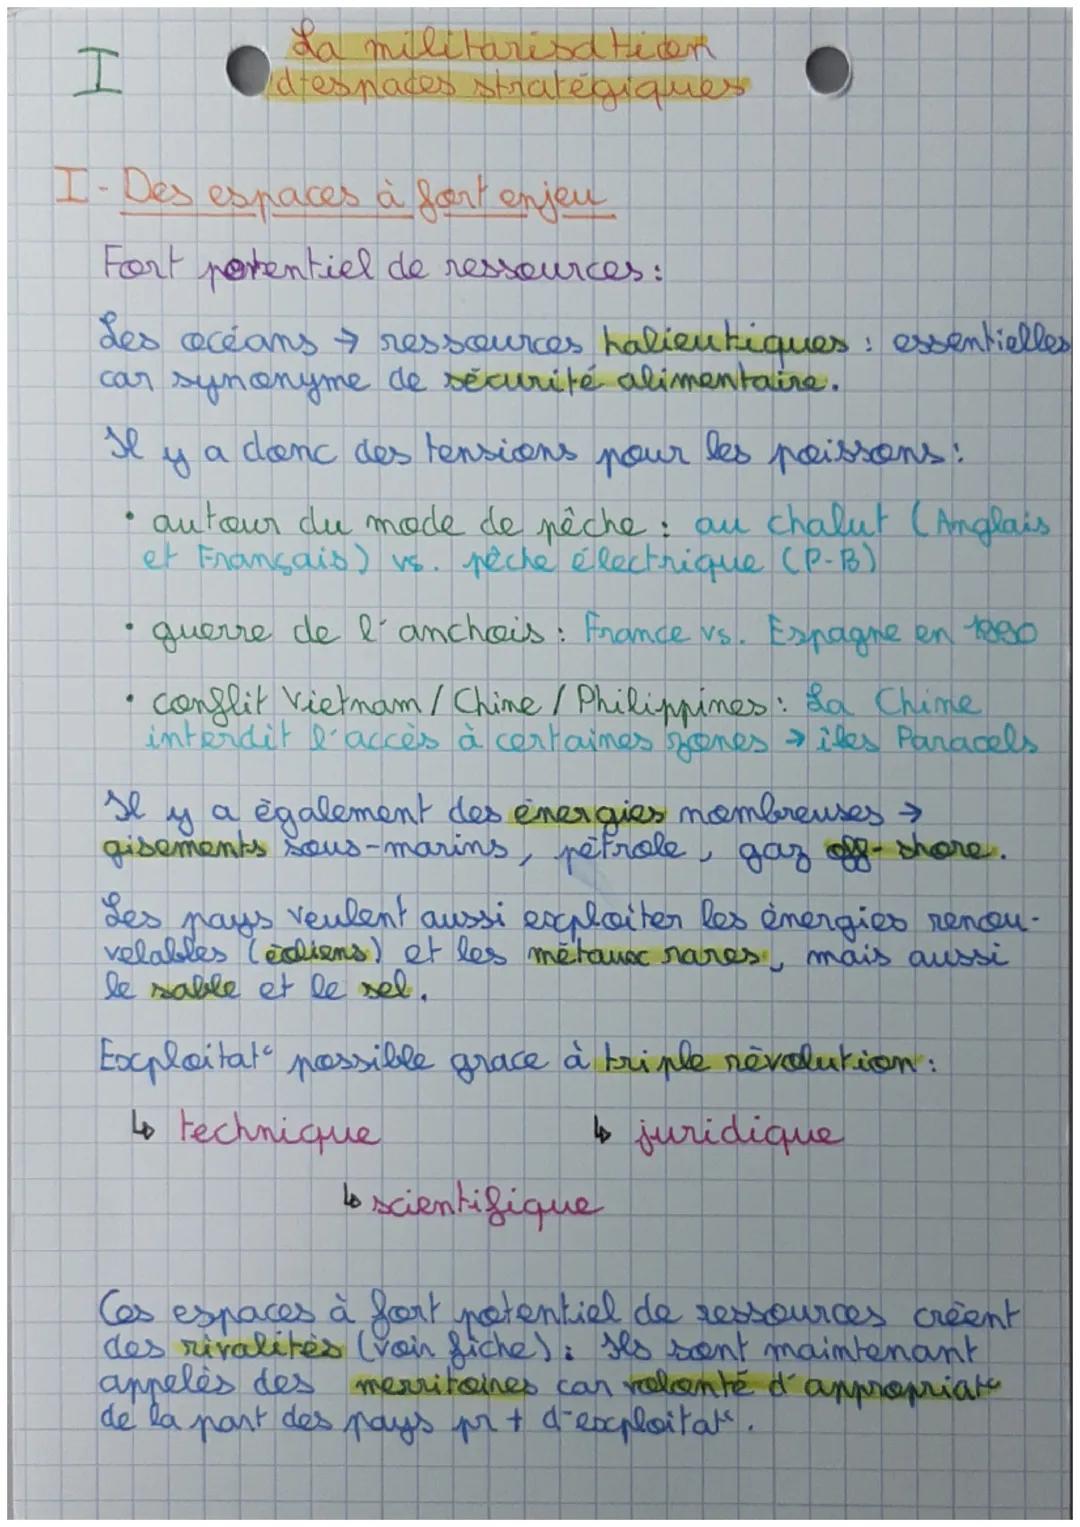 I
La militarisation
d'espaces stratégiques
I - Des espaces à fort enjeu
Fort potentiel de ressources :
Les océans → ressources halieutiques : essentielles
car synonyme de sécurité alimentaire.
Il y a donc des tensions pour les poissons :
• autour du mode de pêche : au chalut (Anglais
et Français) vs. pêche électrique (P-B)
• guerre de l'anchois : France vs. Espagne en
• conflit Vietnam / Chine / Philippines : La Chine
interdit l'accès à certaines zones → îles Paracels
Il y a également des énergies nombreuses →
gisements sous-marins, pétrole, gaz off-shore.
Les pays veulent aussi exploiter les énergies renou-
velables (éoliens) et les métaux rares, mais aussi
le sable et le sel.
Exploitat° possible grace à triple révolution :
↳ technique ↳ juridique
↳ scientifique
Ces espaces à fort potentiel de ressources créent
des rivalités (voir fiche) : Ils sont maintenant
appelés des merritoires car volonté d'appropriat°
de la part des pays pr + d'exploitat°.